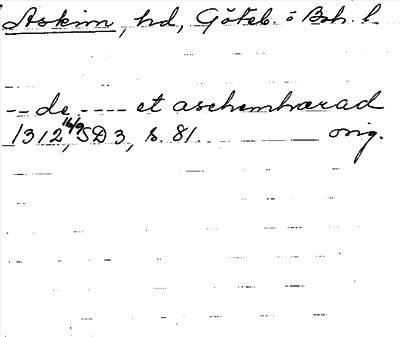 Askim, hd, Göteb. o Boh. l.
-- de ---- et aschemhærad
1312 16/9, SD 3, s. 81. orig.